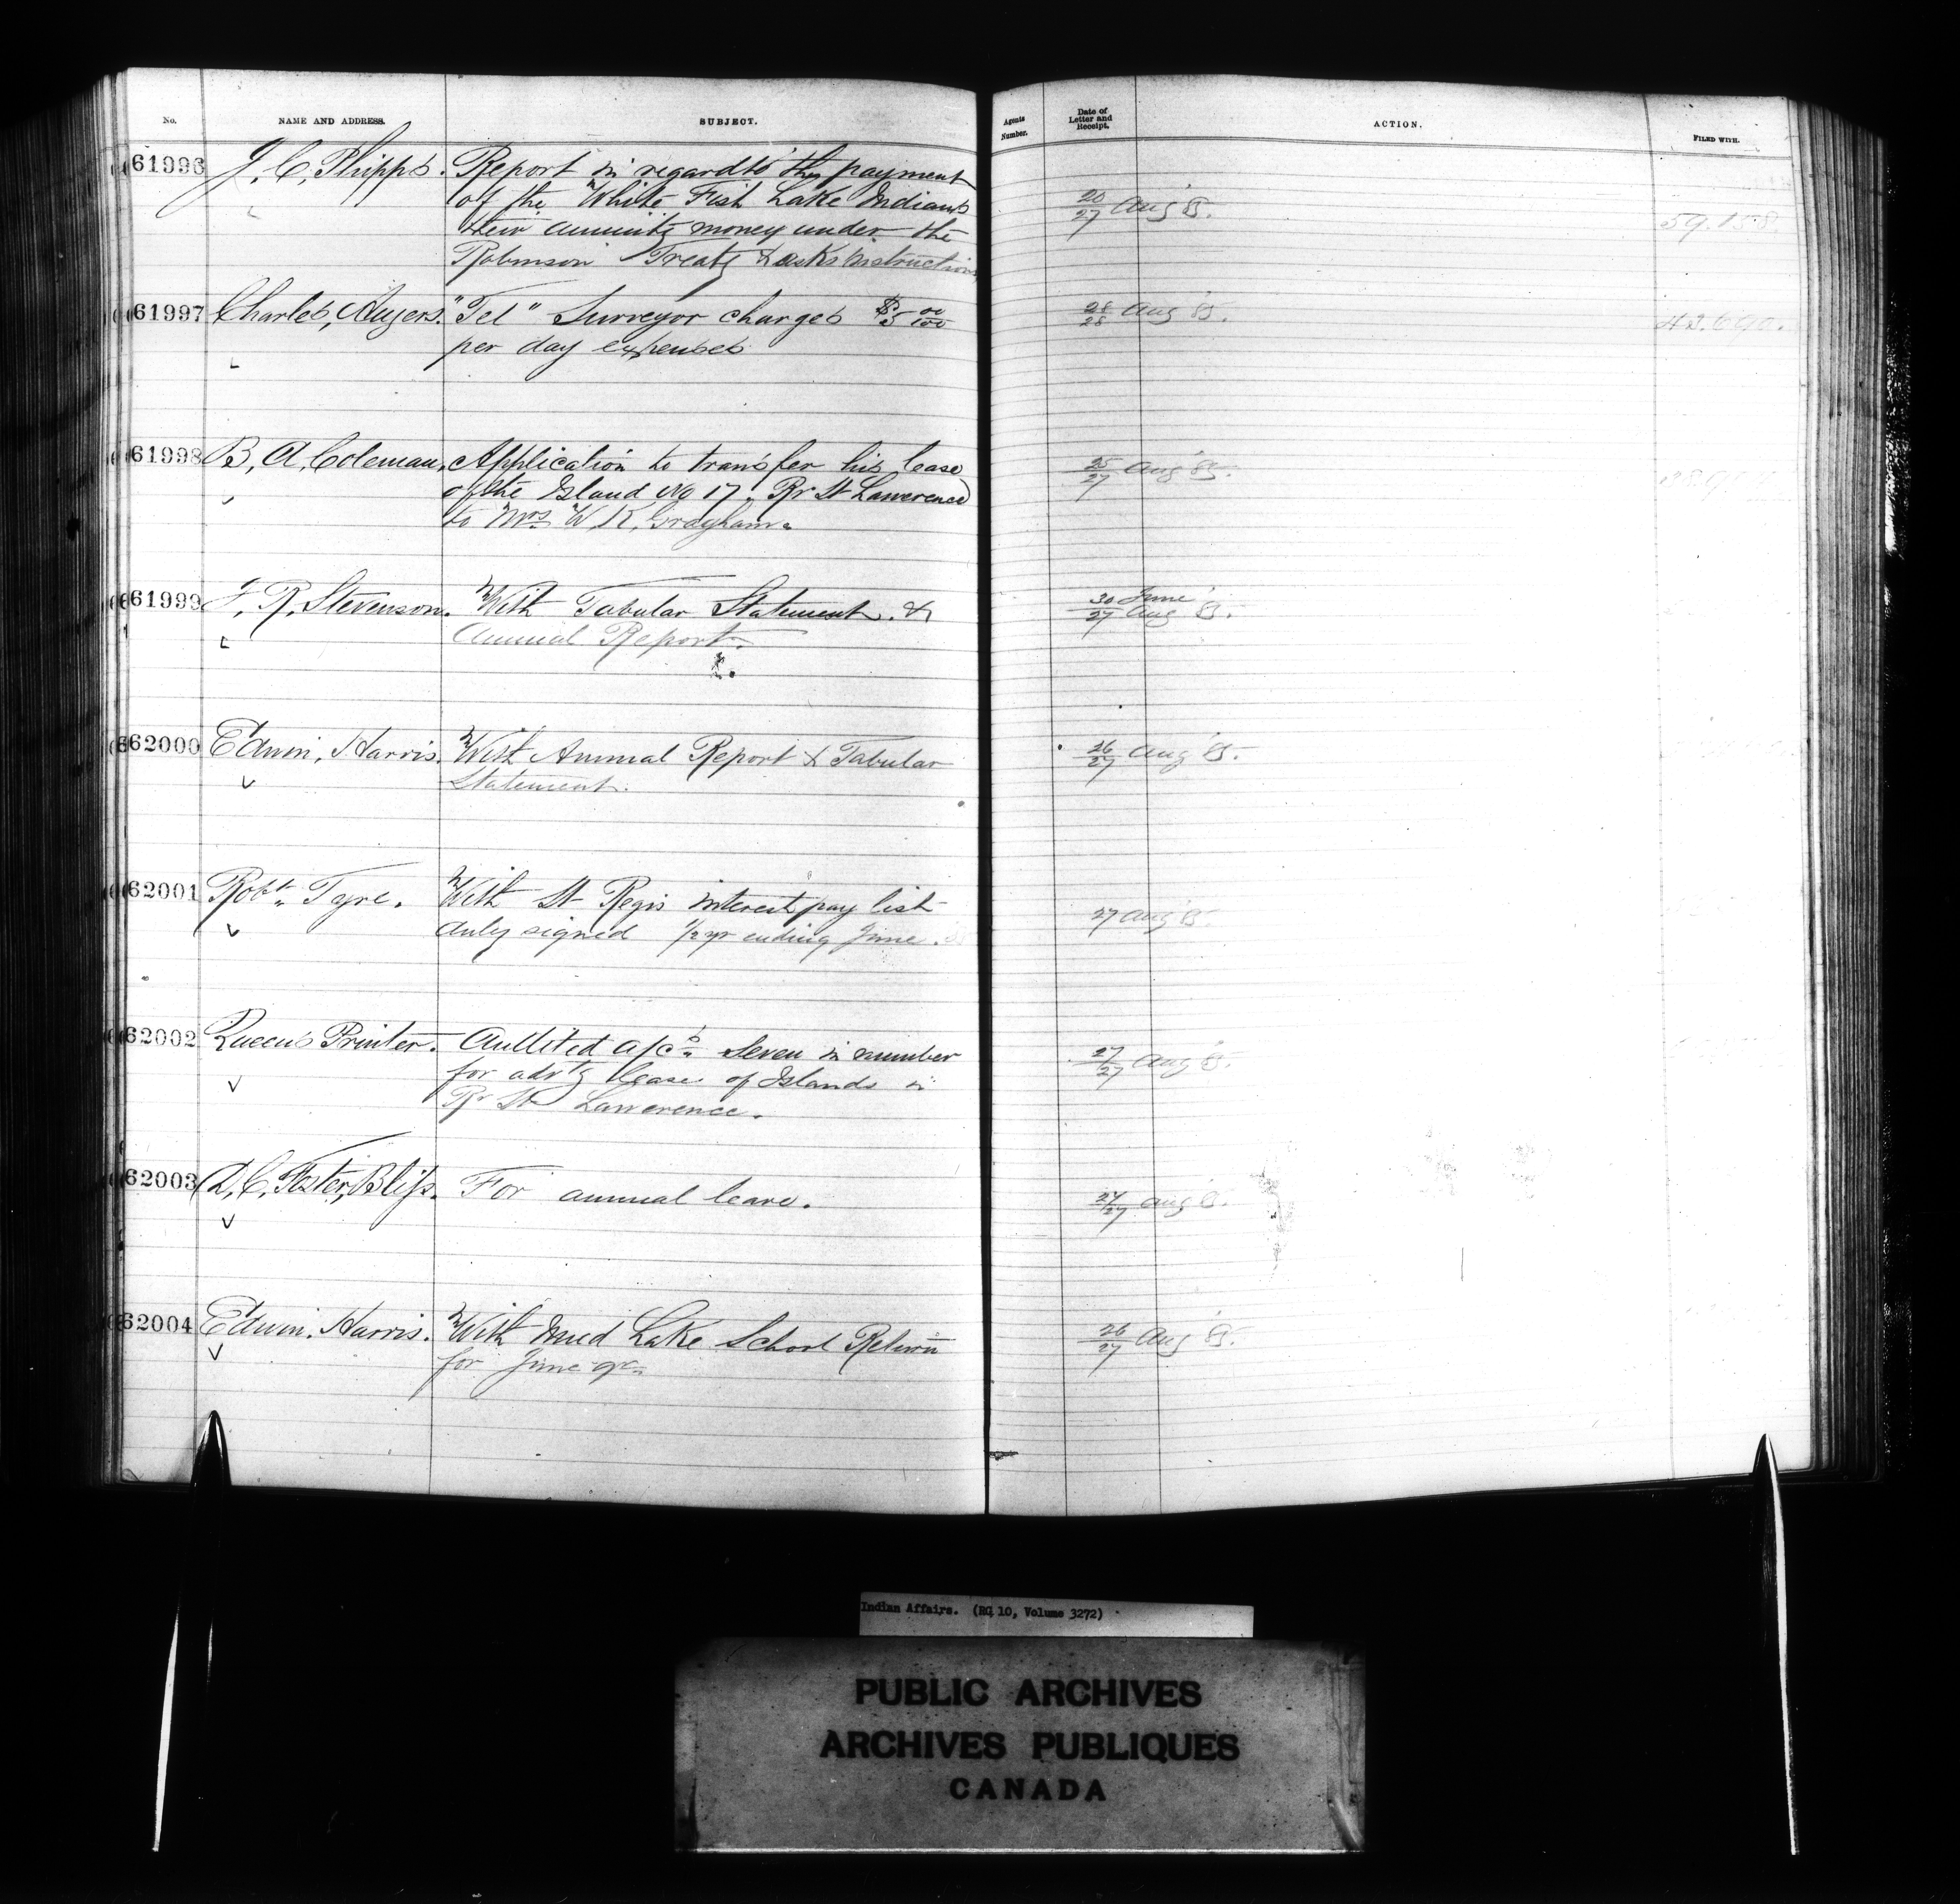 No. NAME AND ADDRESS. SUBJECT. Agents Number. Date of Letter and Receipt. ACTION. FILED WITH.
61996 J. C. Phipps. Report in regard to the payment
of the White Fish Lake Indians 20/27 Aug '85. 59.158.
their annuity money under the
Robinson Treaty & asks instructions
61997 Charles, Angers. "Tel" Surveyor charges $5 00/100 28/28 Aug '85.
per day expenses
61998 B, A, Coleman, Application to transfer his lease 25/27 Aug '85.
of the Island No 17. Rr St Lawerence
to Mrs W, K, Grayham.
61999 F, R, Stevenson. With Tabular Statement. & 30 June/27 Aug '85.
Annual Report.
62000 Edwin, Harris. With Annual Report & Tabular 26/27 Aug '85.
Statement.
62001 Robt. Tyre. With St Regis interest pay list 27 Aug '85.
duly signed 1/2 yr ending June.
62002 Queens Printer. Audited a/cs. seven in number 27/27 Aug '85.
for advtg lease of Islands in
Rr St Lawerence.
62003 D, C, Foster, Bliss. For annual leave. 27/27 Aug '85.
62004 Edwin. Harris. With Mud Lake School Return 26/27 Aug '85.
for June qr
Indian Affairs. (RG 10, Volume 3272)
PUBLIC ARCHIVES
ARCHIVES PUBLIQUES
CANADA